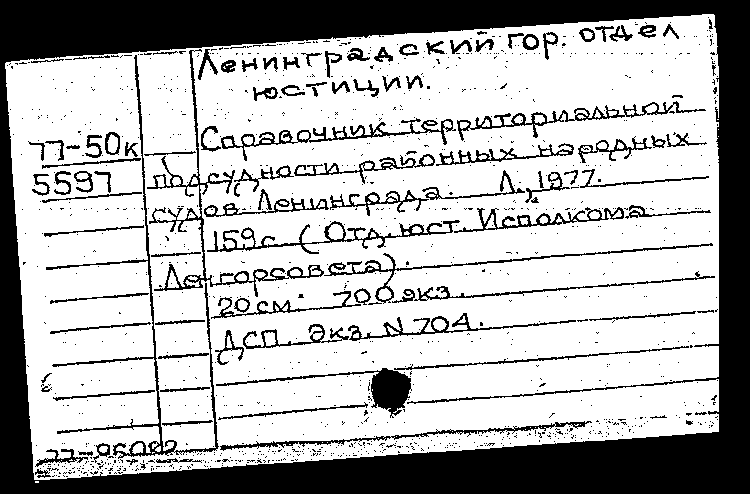 Ленинградский гор. отдел
юстиции.
77-50к
5597
Справочник территориальной
подсудности районных народных
судов Ленинграда. Л., 1977.
159с. (Отд. юст. Исполкома
Ленгорсовета).
20см. 700экз.
ДСП. Экз. N 704.
77-96082